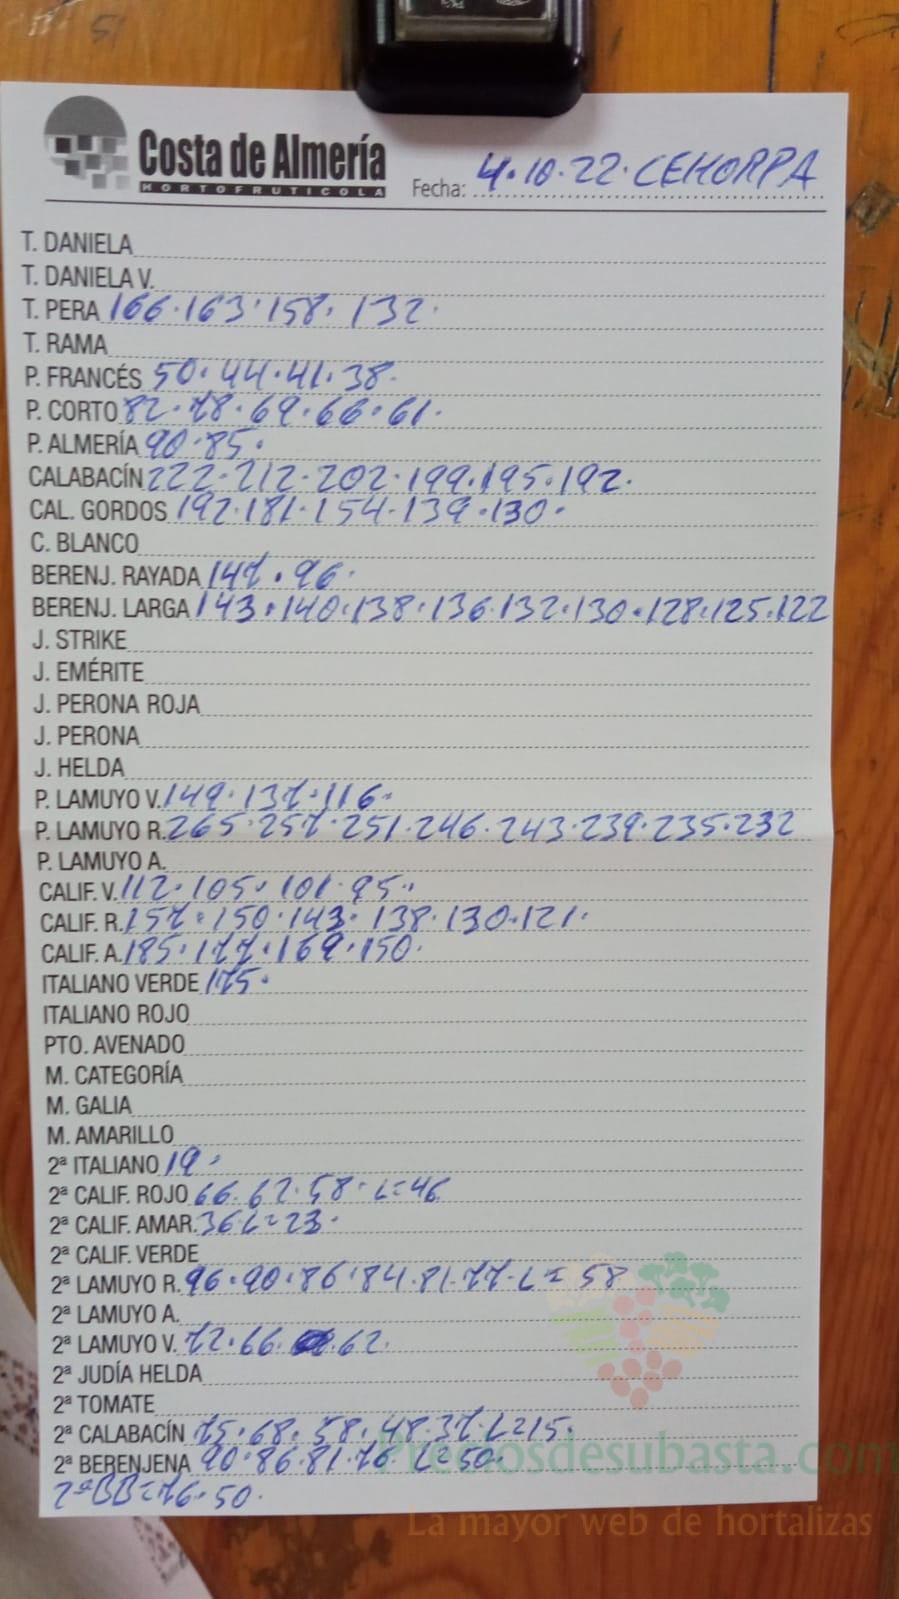 Costa de Almería
HORTOFRUTICOLA
Fecha: 4.10.22. CEHORPA
T. DANIELA
T. DANIELA V.
T. PERA 166.163.158. 132.
T. RAMA
P. FRANCÉS 50.44.41.38.
P. CORTO 82.78.69.66.61.
P. ALMERÍA 90.85.
CALABACÍN 222.212.202.199.195.192.
CAL. GORDOS 192.181.154.139.130.
C. BLANCO
BERENJ. RAYADA 147.96.
BERENJ. LARGA 143.140.138.136.132.130.128.125.122
J. STRIKE
J. EMÉRITE
J. PERONA ROJA
J. PERONA
J. HELDA
P. LAMUYO V. 149.137.116.
P. LAMUYO R. 265.257.251.246.243.239.235.232
P. LAMUYO A.
CALIF. V. 112.105.101.95.
CALIF. R. 157.150.143.138.130.121.
CALIF. A. 185.177.169.150.
ITALIANO VERDE 175.
ITALIANO ROJO
PTO. AVENADO
M. CATEGORÍA
M. GALIA
M. AMARILLO
2ª ITALIANO 19.
2ª CALIF. ROJO 66.62.58.L=46
2ª CALIF. AMAR. 36L=23.
2ª CALIF. VERDE
2ª LAMUYO R. 96.90.86.84.81.77.L=58
2ª LAMUYO A.
2ª LAMUYO V. 72.66. 62.
2ª JUDÍA HELDA
2ª TOMATE
2ª CALABACÍN 75.68.58.48.37.L=15.
2ª BERENJENA 90.86.81.76.L=50.
2ªBB=76.50.
Preciosdesubasta.com
La mayor web de hortalizas